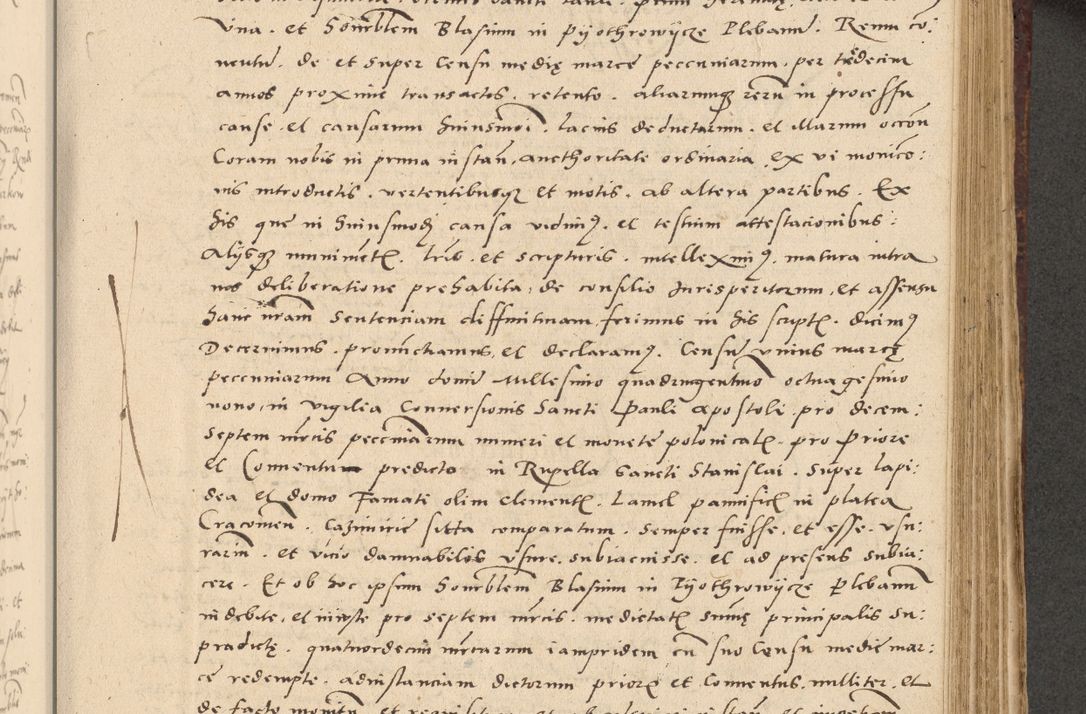 una . et honorablem Blasium in Pyothrowycze Plebanum . Reum co:
nentum . de et super Censu medię marce peccuniarum . per tredecim
annos proxime transactos . retento . aliarumque rerum in processu
cause . et causarum huiusmodi . lacius deductarum . et illarum occon
Coram nobis in prima instan. aucthoritate ordinaria ex vi monico:
nis introductis . vertentibusque et motis . ab altera partibus . Ex
his que in huiusmodi causa vidimus . et testium attestacionibus :
Alysque munimetis . lris . et scripturis . intellexmus . matura intra
nos deliberatione prehabita, de consilio Jurisperitorum, et assensu
hanc nram Sentenciam diffinitivam ferimus in his scriptis . dicimus
Decernimus . pronuctiamus, et declaramus . Censum unius marcę
peccuniarum Anno domini Millesimo quadringentimo octuagesimo
nono, in vigilia Conversionis Sancti Pauli Apostoli pro decem:
septem mrcis peccuniarum numeri et monete polonicalis . pro Priore
et Conventum predicto in Rupella Sancti Stanislai . super lapi:
dea et domo Famati olim Clementis . Lamel pannificis in platea
Cracovien . Cazimirie sitta comparatum . semper fuisse, et esse . usu:
rarium . et vicio damnabilis usure . subiacuisse . et ad presens subia:
cere . Et ob hoc ipsum honorablem Blasium in Pyothrowycze Plebanum
indebite, et iniuste pro septem mrcis . medietatis sumę principalis su:
pradictę . quatuordecim mrcarum iampridem cum suo Censu medie mar:
ce redempte . adinstanciam dictorum prioris et Conventus . nulliter . et
de facto monitum